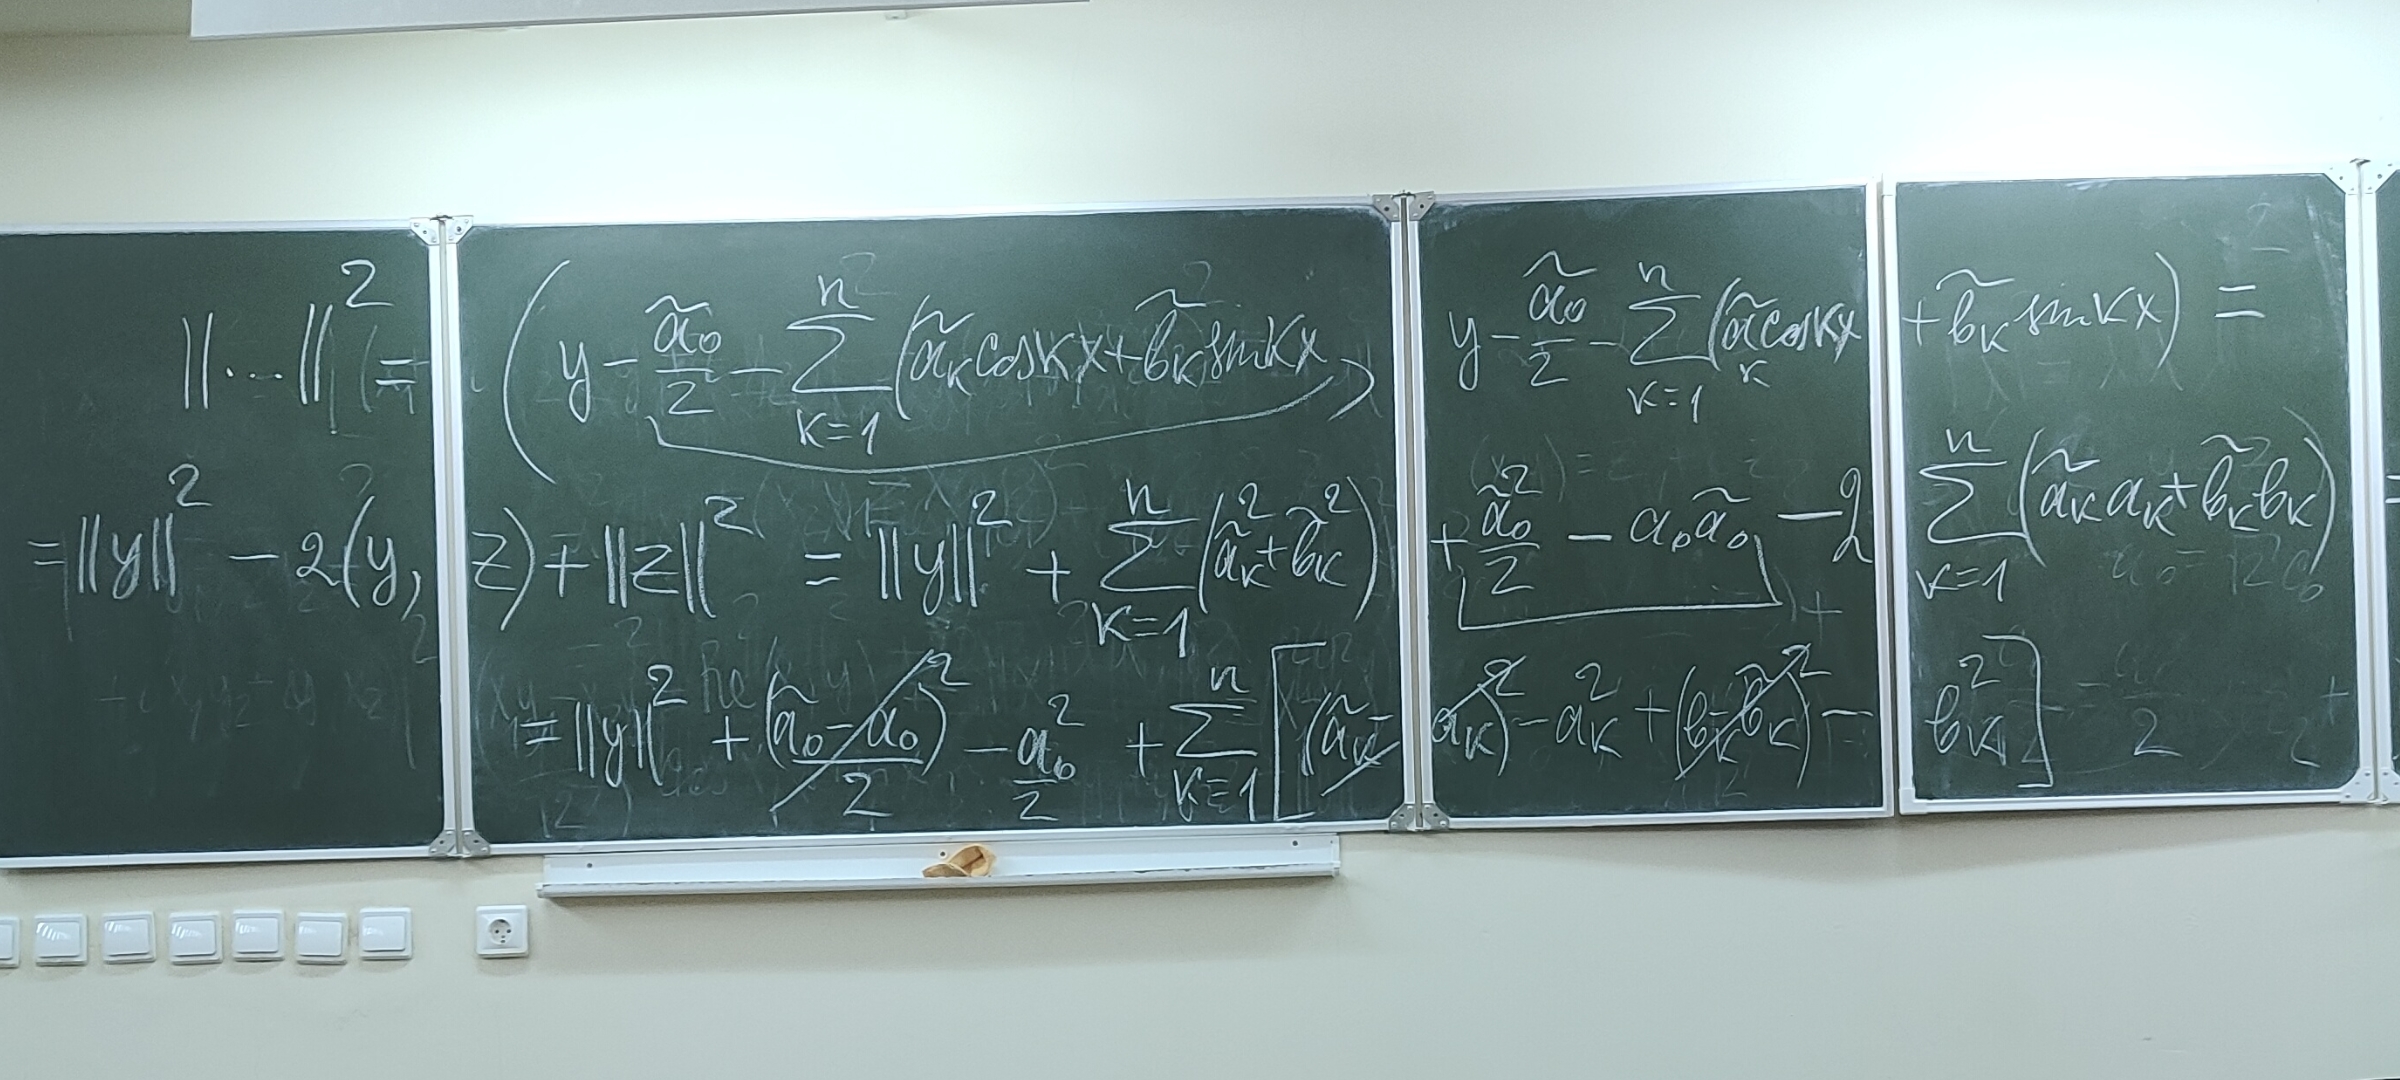 ‖...‖² = (y - ã₀/2 - ∑_{k=1}^{n} (ã_k cos kx + b̃_k sin kx, y - ã₀/2 - ∑_{k=1}^{n} (ã_k cos kx + b̃_k sin kx) =
= ‖y‖² - 2(y, z) + ‖z‖² = ‖y‖² + ∑_{k=1}^{n} (ã_k² + b̃_k²) + ã₀²/2 - a₀ã₀ - 2 ∑_{k=1}^{n} (ã_k a_k + b̃_k b_k)
= ‖y‖² + (ã₀ - a₀)²/2 - a₀²/2 + ∑_{k=1}^{n} [(ã_k - a_k)² - a_k² + (b_k - b̃_k)² - b_k²]